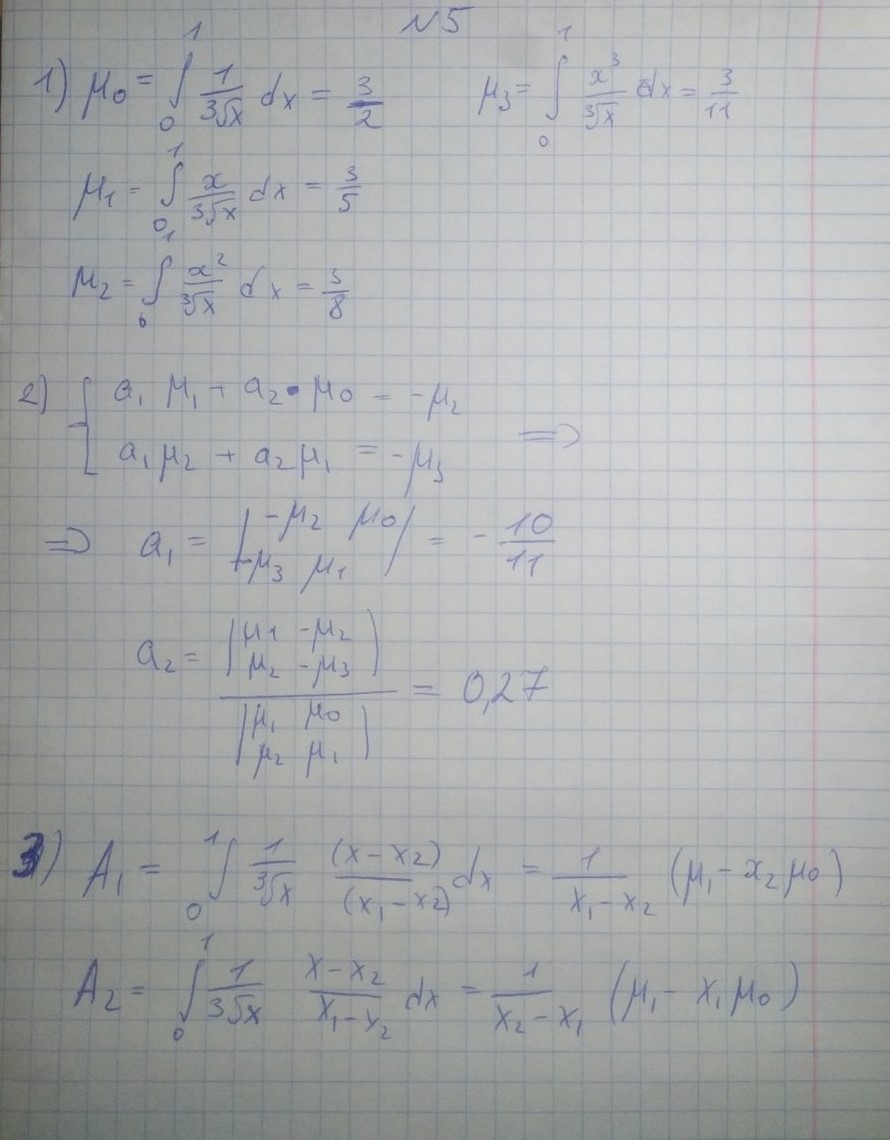 №5
1) μ₀ = ∫₀¹ 1/∛x dx = 3/2
μ₃ = ∫₀¹ x³/∛x dx = 3/11
μ₁ = ∫₀¹ x/∛x dx = 3/5
μ₂ = ∫₀¹ x²/∛x dx = 3/8
2) { a₁ μ₁ + a₂ • μ₀ = -μ₂
a₁ μ₂ + a₂ μ₁ = -μ₃ ⇒
⇒ a₁ = |-μ₂ μ₀; -μ₃ μ₁| = - 10/11
a₂ = |μ₁ -μ₂; μ₂ -μ₃| / |μ₁ μ₀; μ₂ μ₁| = 0,27
3) A₁ = ∫₀¹ 1/∛x (x-x₂)/(x₁-x₂) dx = 1/(x₁-x₂) (μ₁ - x₂μ₀)
A₂ = ∫₀¹ 1/∛x (x-x₂)/(x₁-x₂) dx = 1/(x₂-x₁) (μ₁ - x₁μ₀)